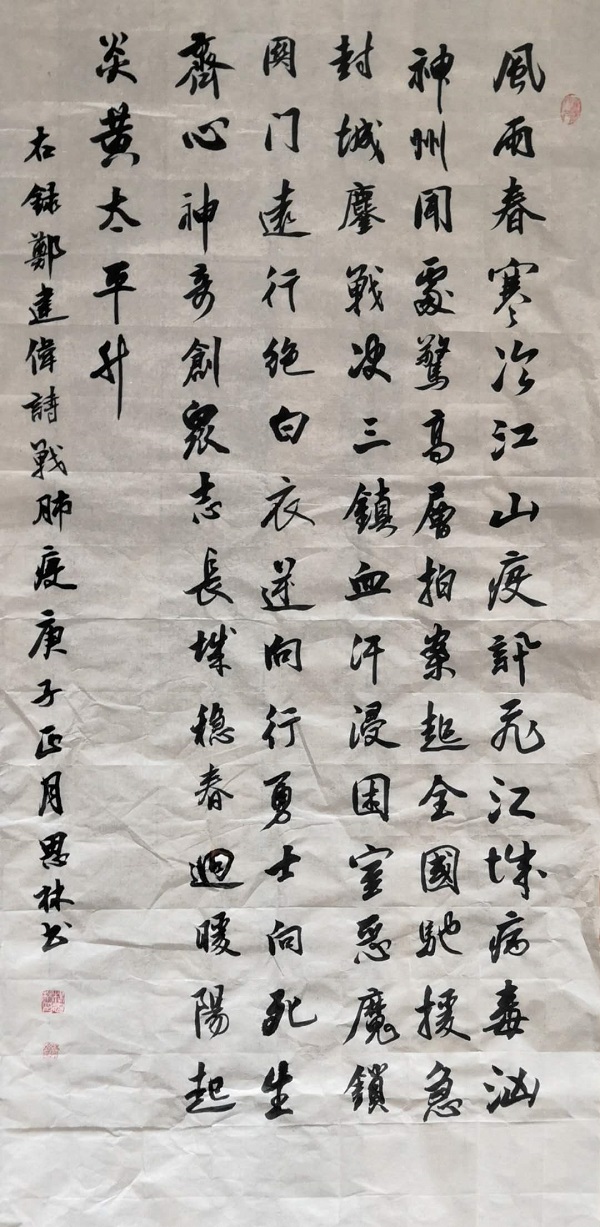 風雨春寒冷江山疫訊飛江城病毒汹
神州聞處驚高層拍案起全國馳援急
封城鏖戰决三鎮血汗浸困室惡魔鎖
国门遠行绝白衣逆向行勇士向死生
齊心神奇創衆志長城稳春迴暖陽起
炎黄太平升
右錄鄭建偉詩戰肺疫庚子正月思林书